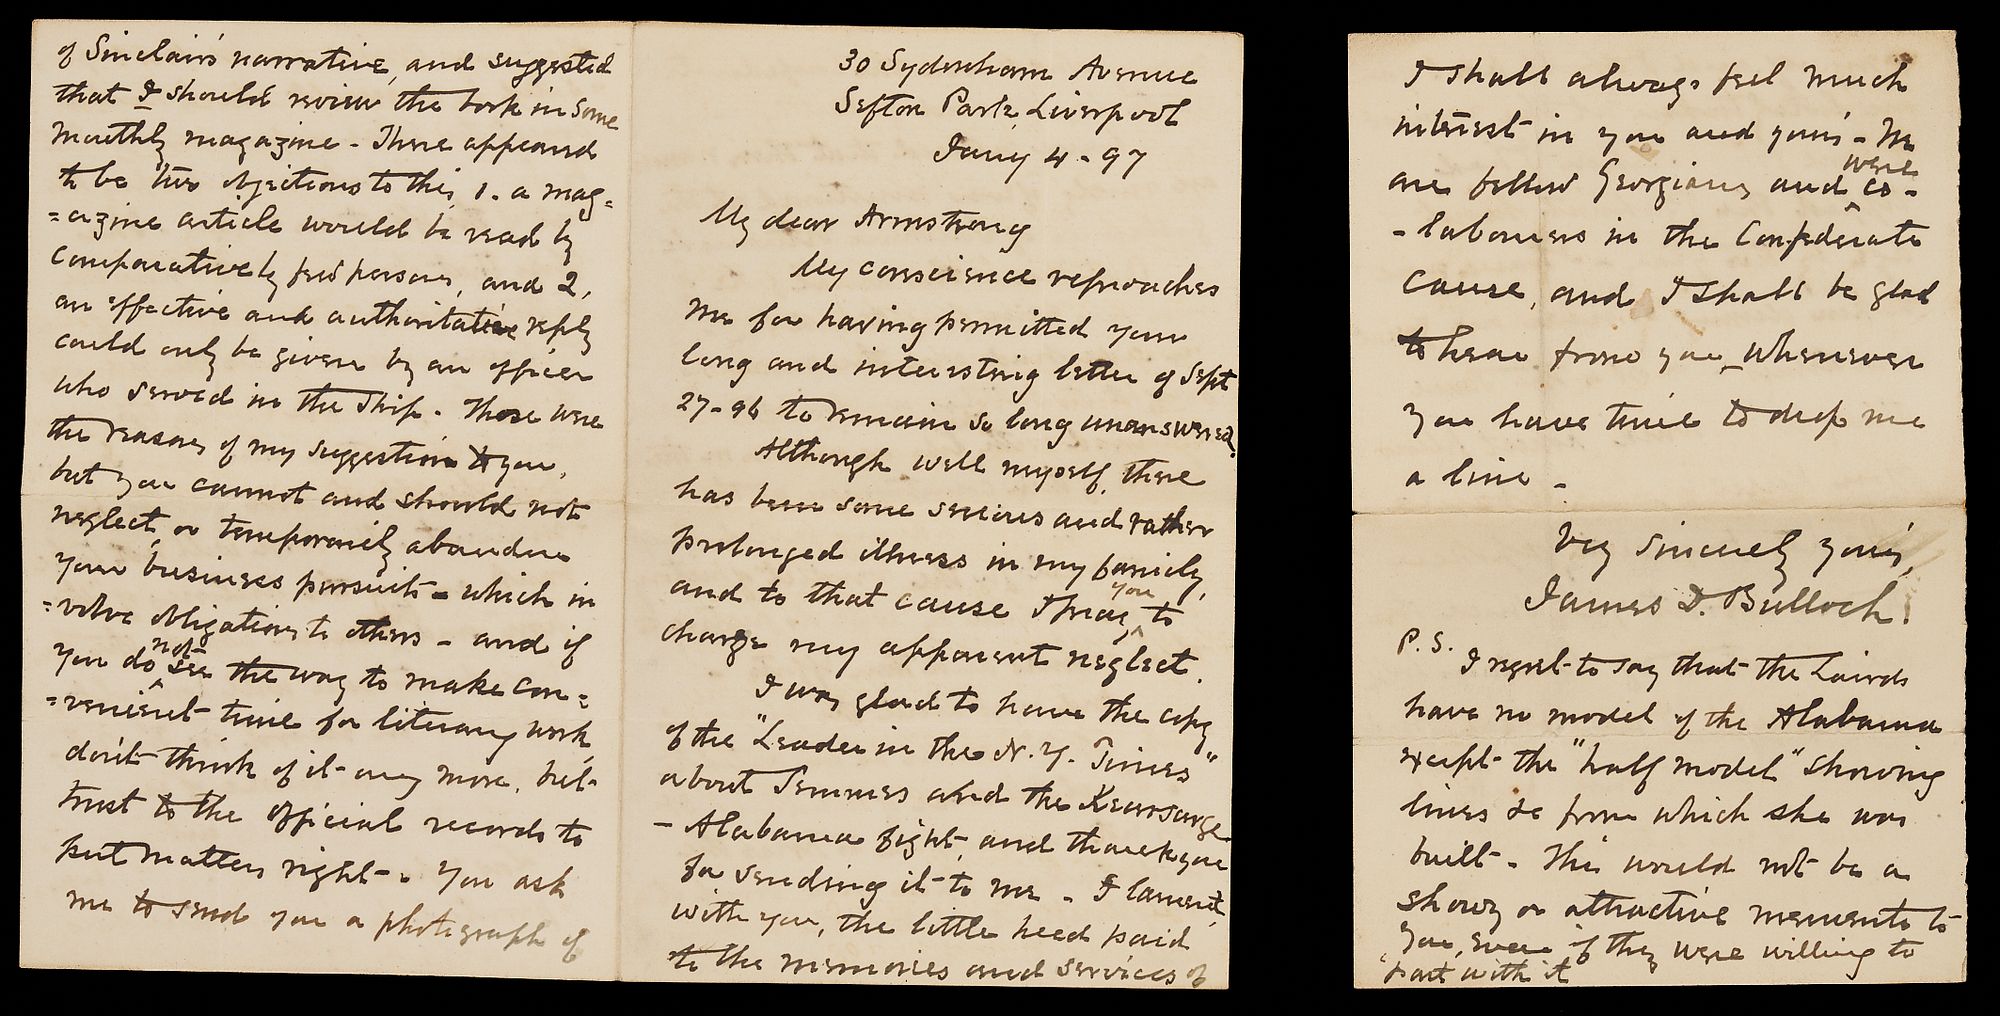 of Sinclair's narrative, and suggested
that I should review the book in some
monthly magazine - There appeared
to be two objections to this, 1. a mag=
=azine article would be read by
comparatively few persons, and 2,
an effective and authoritative reply
could only be given by an officer
who served in the ship. These were
the reasons of my suggestion to you,
but you cannot and should not
neglect, or temporarily abandon
your business pursuits - which in
=volve obligations to others - and if
you do not see the way to make con=
=venient time for literary work,
don't think of it any more, but
trust to the official records to
put matters right - You ask
me to send you a photograph of
30 Sydenham Avenue
Sefton Park, Liverpool
Jany 4 - 97
My dear Armstrong
My conscience reproaches
me for having permitted your
long and interesting letter of Sept
27-96 to remain so long unanswered.
Although well myself, there
has been some serious and rather
prolonged illness in my family,
and to that cause I pray you to
charge my apparent neglect.
I was glad to have the copy
of the "Leader in the N.Y. Times"
about Semmes and the Kearsarge
- Alabama fight, and thank you
for sending it to me - I lament,
with you, the little heed paid
to the memories and services of
I shall always feel much
interest in you and yours - We
are fellow Georgians and were co-
-laborers in the Confederate
cause, and I shall be glad
to hear from you, whenever
you have time to drop me
a line -
Very sincerely yours,
James D. Bulloch.
P.S.
I regret to say that the Lairds
have no model of the Alabama
except the "half model" showing
lines &c from which she was
built - This would not be a
showy or attractive memento to
you, even if they were willing to
part with it